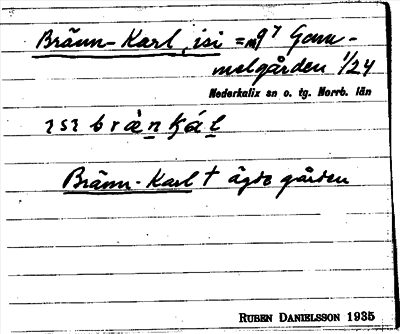 Bränn-Karl, isi = mg⁷ Gam-
melgården 1/24
Nederkalix sn o. tg. Norrb. län
Bränn-Karl † ägde gården
RUBEN DANIELSSON 1935